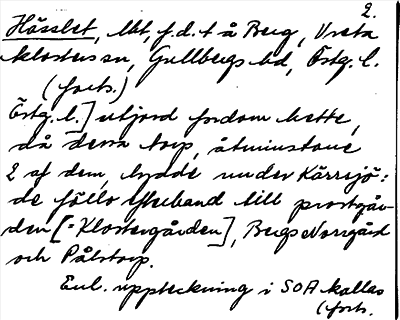 2.
Hässlet, lht, f.d. t å Berg, Vreta
klosters sn, Gullbergs hd, Östg. l.
(forts.)
Östg. l.] utjord fordom hette,
då dessa torp, åtminstone
2 af dem, lydde under Kärrsjö:
de föllo efterhand till prostgår-
den [= Klostergården], Bergs Norrgård
och Pålstorp.
Enl. uppteckning i SOA kallas
(forts.